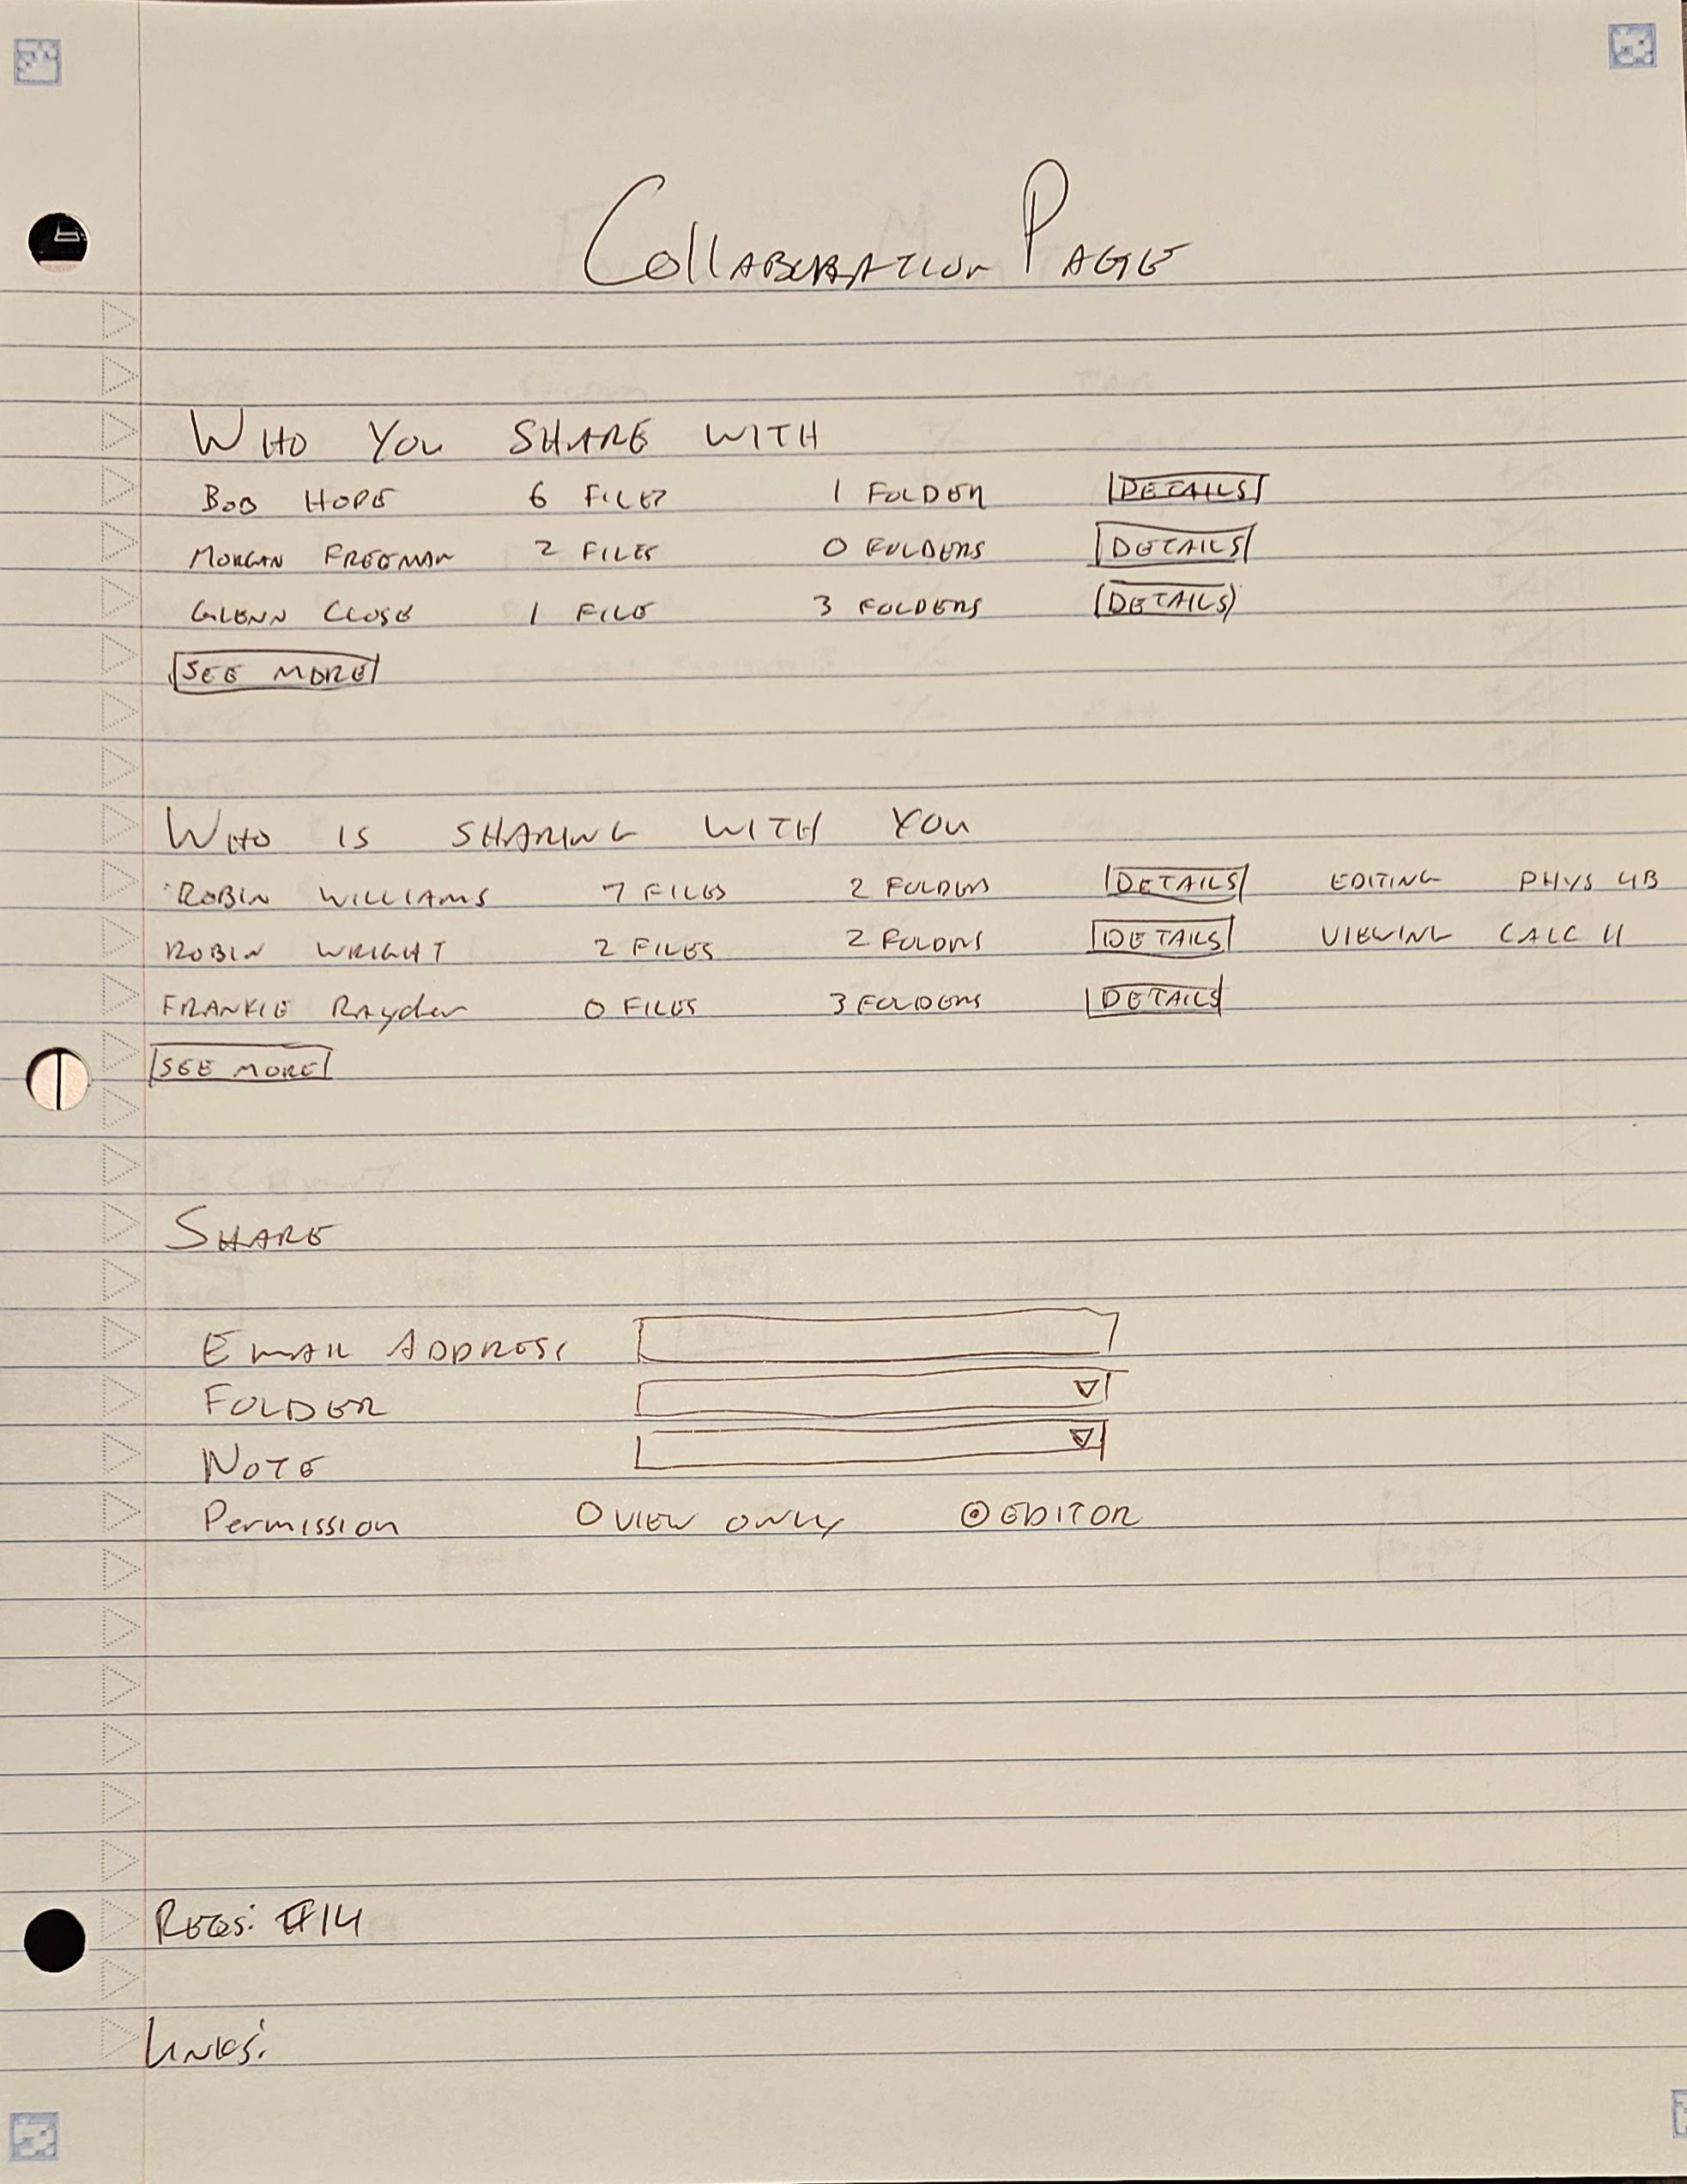 Collaboration Page
Who You Share With
Bob Hope 6 Files 1 Folder Details
Morgan Freeman 2 Files 0 Folders Details
Glenn Close 1 File 3 Folders Details
See More
Who is Sharing With You
Robin Williams 7 Files 2 Folders Details Editing Phys 4B
Robin Wright 2 Files 2 Folders Details Viewing Calc II
Frankie Rayder 0 Files 3 Folders Details
See More
Share
Email Address
Folder
Note
Permission View Only Editor
Reqs: #14
Links: